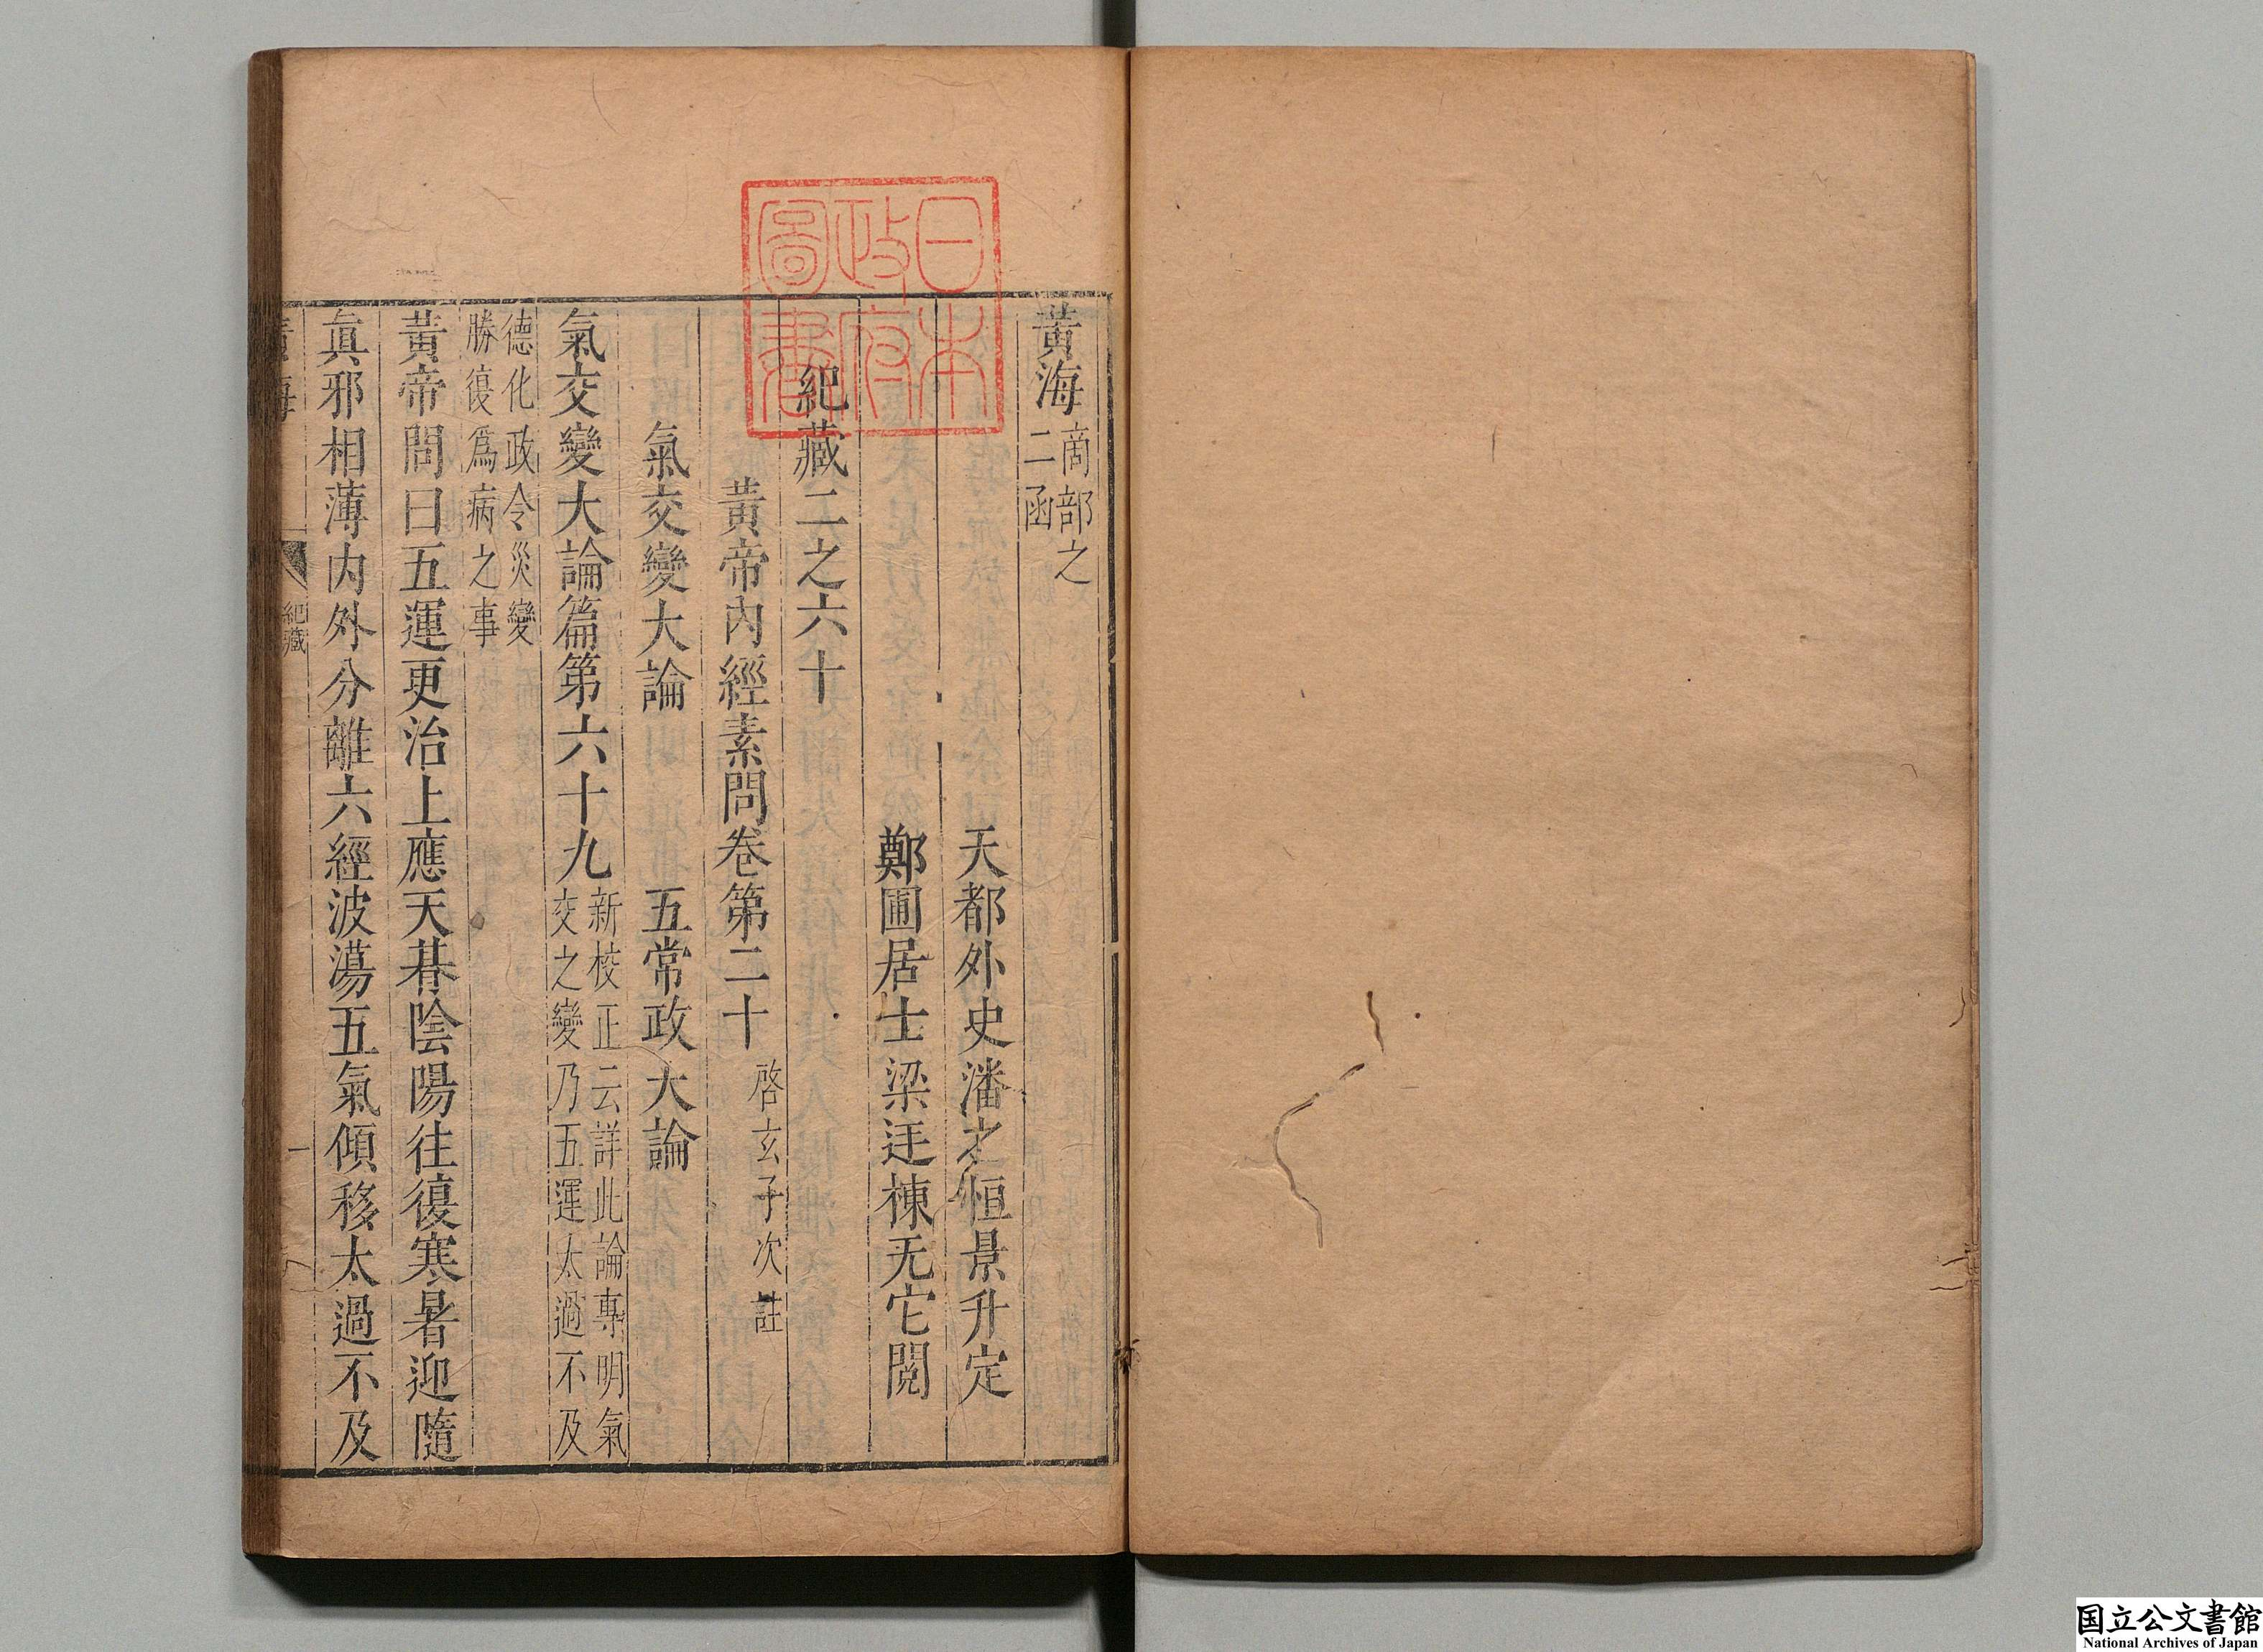 黃海
啇部之
二函
天都外史潘之恒景升定
鄭圃居士梁廷棟无它閱
紀藏二之六十
黃帝內經素問卷第二十
啓玄子次註
氣交變大論　五常政大論
氣交變大論篇第六十九
新校正云詳此論專明氣
交之變乃五運太過不及
德化政令災變
勝復爲病之事
黃帝問曰五運更治上應天朞陰陽往復寒暑迎隨
眞邪相薄内外分離六經波蕩五氣傾移太過不及
黃海
紀藏
一
日本
政府
圖書
国立公文書館
National Archives of Japan